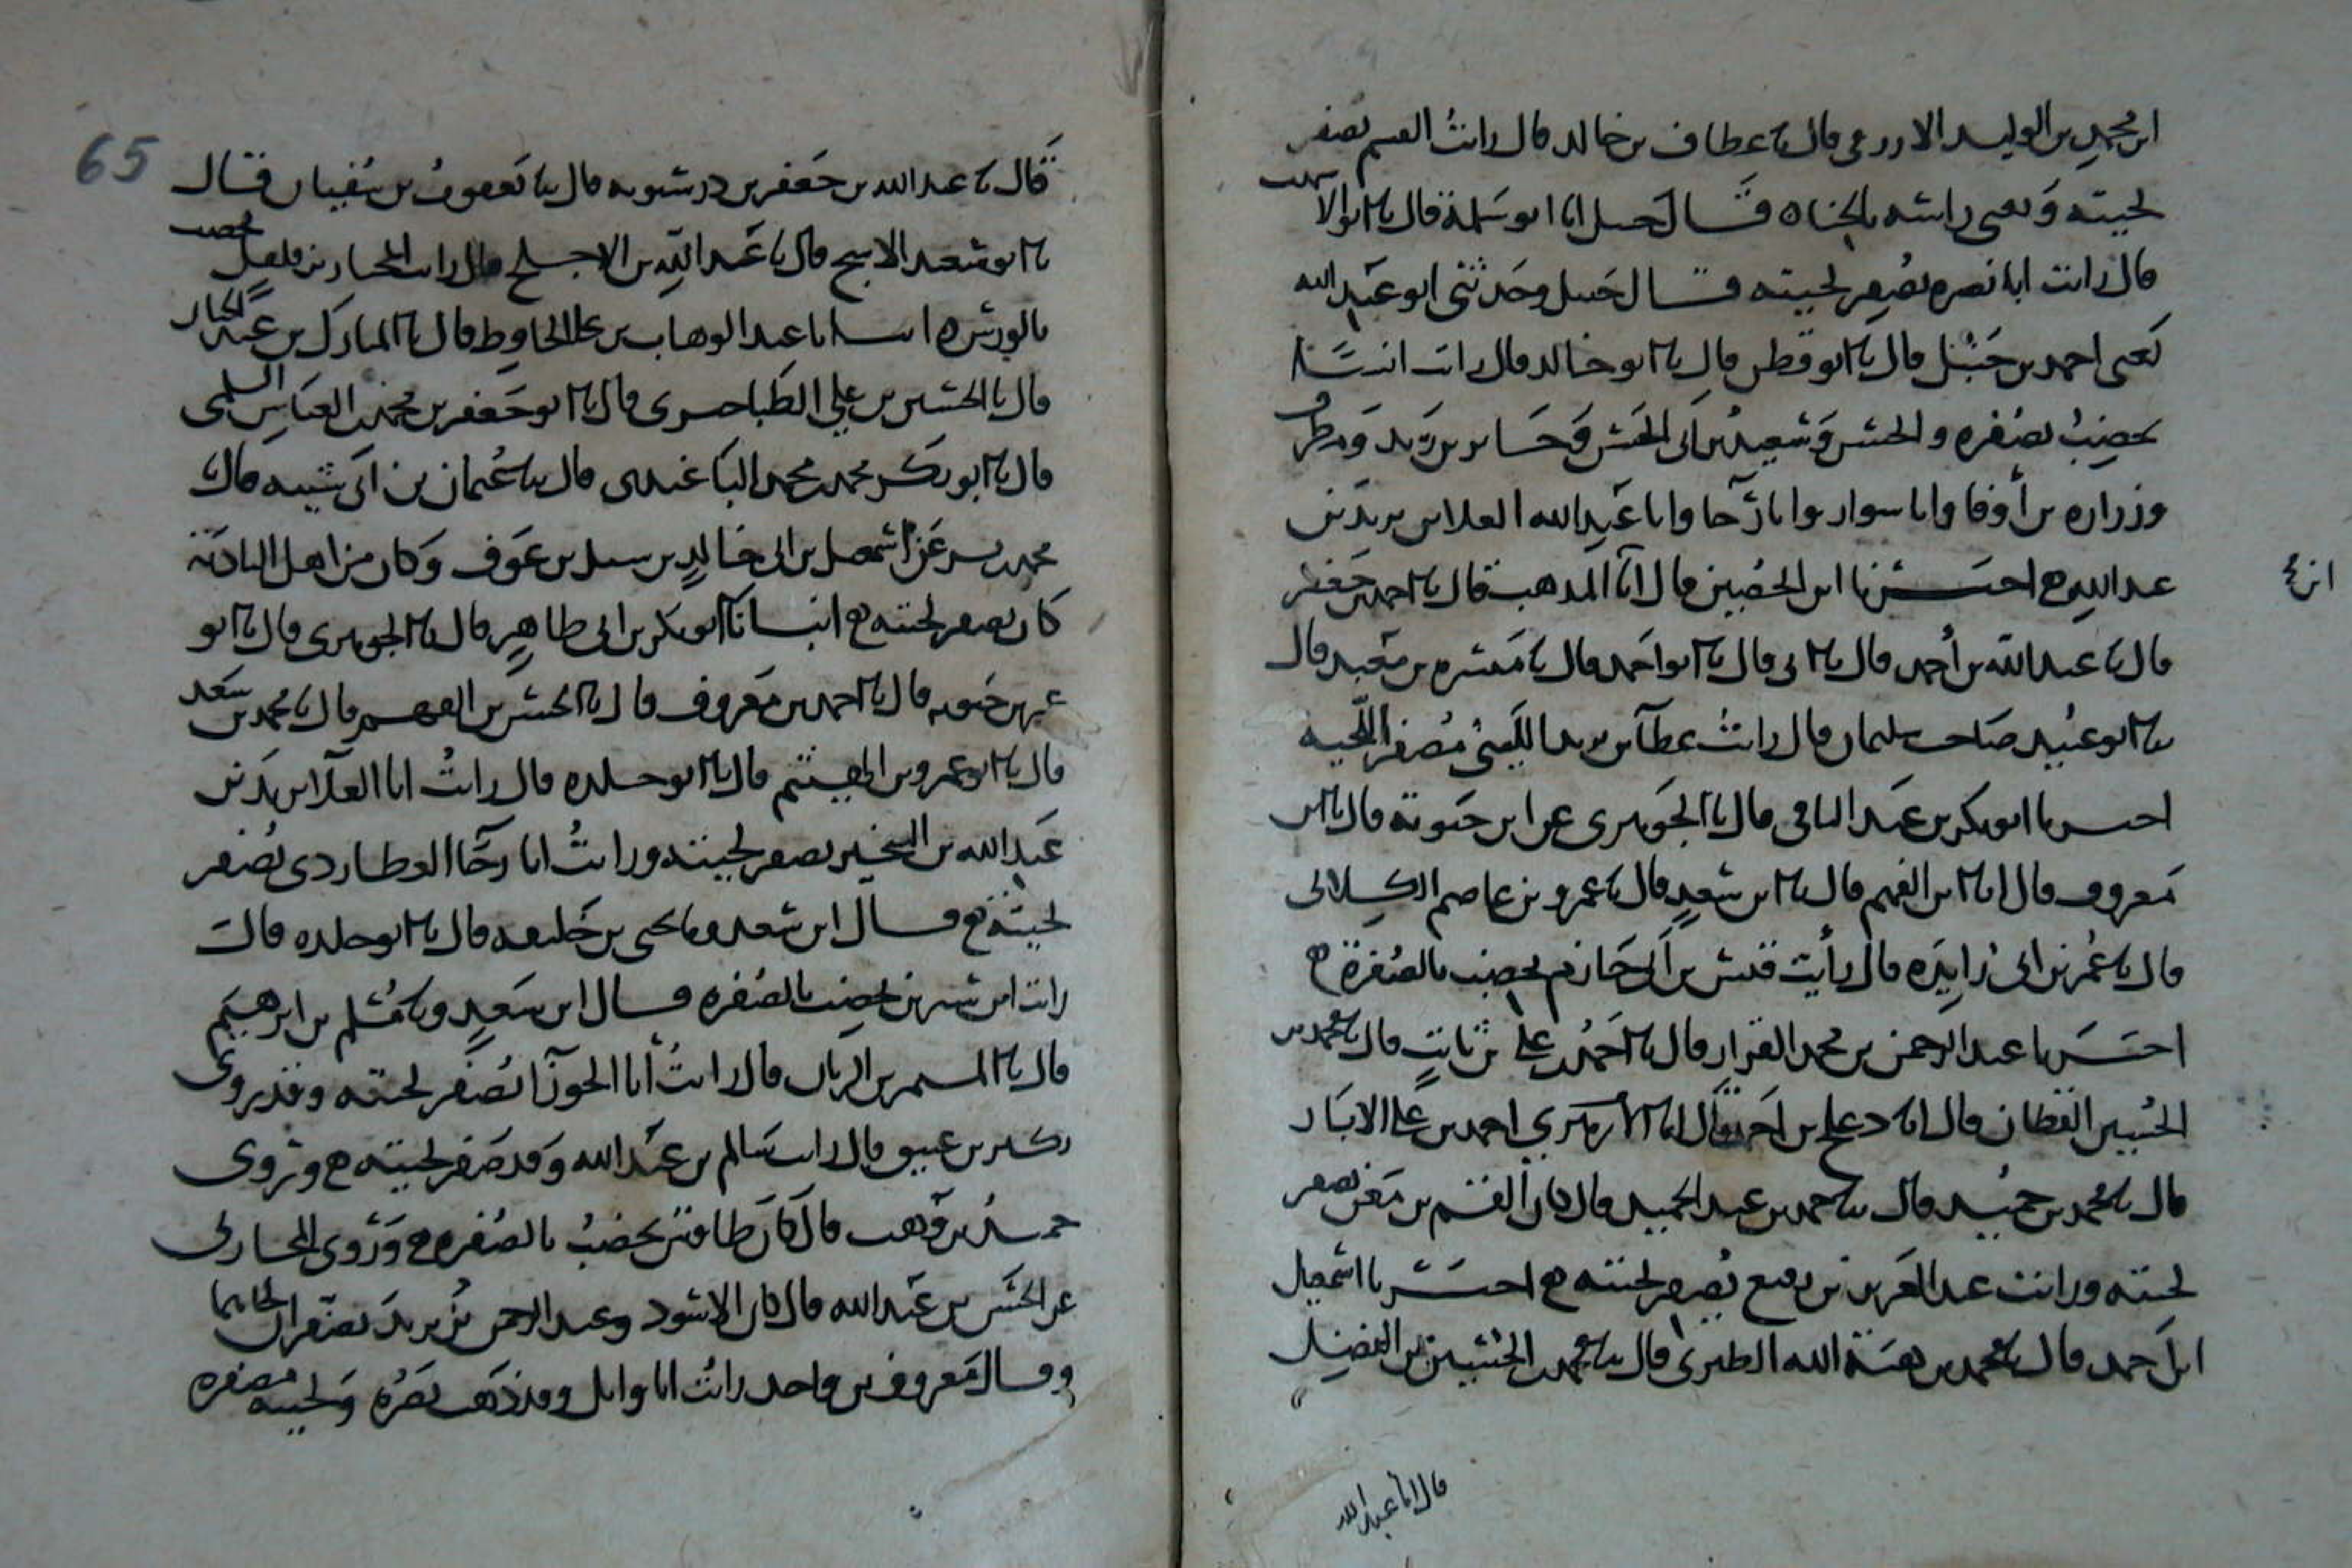 ابن محمد بن الوليد الازرقي قال نا عطاف بن خالد قال رايت القسم يصفر
لحيته ويعني راسه بالحناه قال حنبل انا ابو سلمة قال نا ابو الاشهب
قال رايت ابا نصره يصفر لحيته قال حنبل وحدثني ابو عبد الله
يعني احمد بن حنبل قال نا ابو قطن قال نا ابو خالد قال رايت انسا
يخضب بصفره والحسن وسعيد بن ابي الحسن وجابر بن زيد ومطرف
وزراره بن أوفا وابا سوار وابا رجا وابا عبد الله العلا بن يزيد بن
عبد الله اخبرنا ابن الحصين قال انا المذهب قال نا احمد بن جعفر
قال نا عبد الله بن أحمد قال نا ابي قال نا ابو احمد قال نا مسره بن معبد قال
نا ابو عبيد صاحب سليمان قال رايت عطا بن يزيد الليثي مصفر اللحيه
اخبرنا ابو بكر بن عبد الباقي قال نا الجوهري عن ابن حيويه قال نا ابن
معروف قال انا ابن الفهم قال نا ابن سعد قال نا عمرو بن عاصم الكلابي
قال نا عمر بن ابي زايده قال رأيت قيس بن أبي حازم يخضب بالصفرة
اخبرنا عبد الرحمن بن محمد القزاز قال نا احمد بن علي بن ثابت قال نا محمد بن
الحسين القطان قال انا دعلج بن احمد قال انا احمد بن علي الابار
قال نا محمد بن حميد قال نا محمد بن عبد الحميد قال كان القسم بن معن يصفر
لحيته ورايت عبد العزيز بن رفيع يصفر لحيته اخبرنا اسمعيل
ابن احمد قال نا محمد بن هبة الله الطبري قال نا محمد بن الحسين بن الفضل
قال انا عبد الله
65
قال نا عبد الله بن جعفر بن درستويه قال نا يعقوب بن سفيان قال
نا ابو سعد الاشج قال نا عبد الله بن الاجلح قال رايت المختار بن فلفل يخضب
بالورس انبانا عبد الوهاب بن علي قال نا المبارك بن عبد الجبار
قال نا الحسين بن علي الطناجيري قال نا ابو جعفر بن محمد بن العباس السلمي
قال نا ابو بكر محمد بن محمد الباغندي قال نا عثمان بن ابي شيبه قال نا
محمد بن بشر عن اسمعيل بن ابي خالد بن سبل بن عوف وكان من اهل البادية
كان يصفر لحيته انبانا ابو بكر بن ابي طاهر قال نا الجوهري قال نا ابو
عمر بن حيويه قال نا احمد بن معروف قال نا الحسين بن الفهم قال نا محمد بن سعد
قال نا ابو عمرو بن الهيثم قال نا ابو خلده قال رايت ابا العلا بن يزيد بن
عبد الله بن الشخير يصفر لحيته ورايت ابا رجا العطاردي يصفر
لحيته قال ابن سعد ونا يحيى بن خليفه قال نا ابو خلده قال
رايت ابن سيرين يخضب بالصفره قال ابن سعد ونا مسلم بن ابرهيم
قال نا المستمر بن الريان قال رايت أبا الجوزا يصفر لحيته وقد روى
زكير بن عتيق قال رايت سالم بن عبد الله وقد صفر لحيته وروى
حميد بن وهب قال كان طاوس يخضب بالصفره وروى المحاربي
عن الحسن بن عبد الله قال كان الاسود وعبد الرحمن بن يزيد يصفران لحاهما
وقال معروف بن واصل رايت ابا وايل وقد ذهب بصره ولحيته مصفره